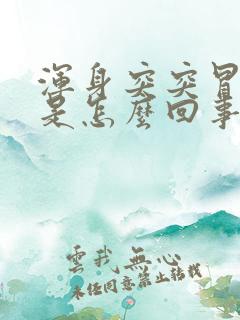 渾身突突冒
是怎麼回事
雲我無心
未經同意禁止轉載